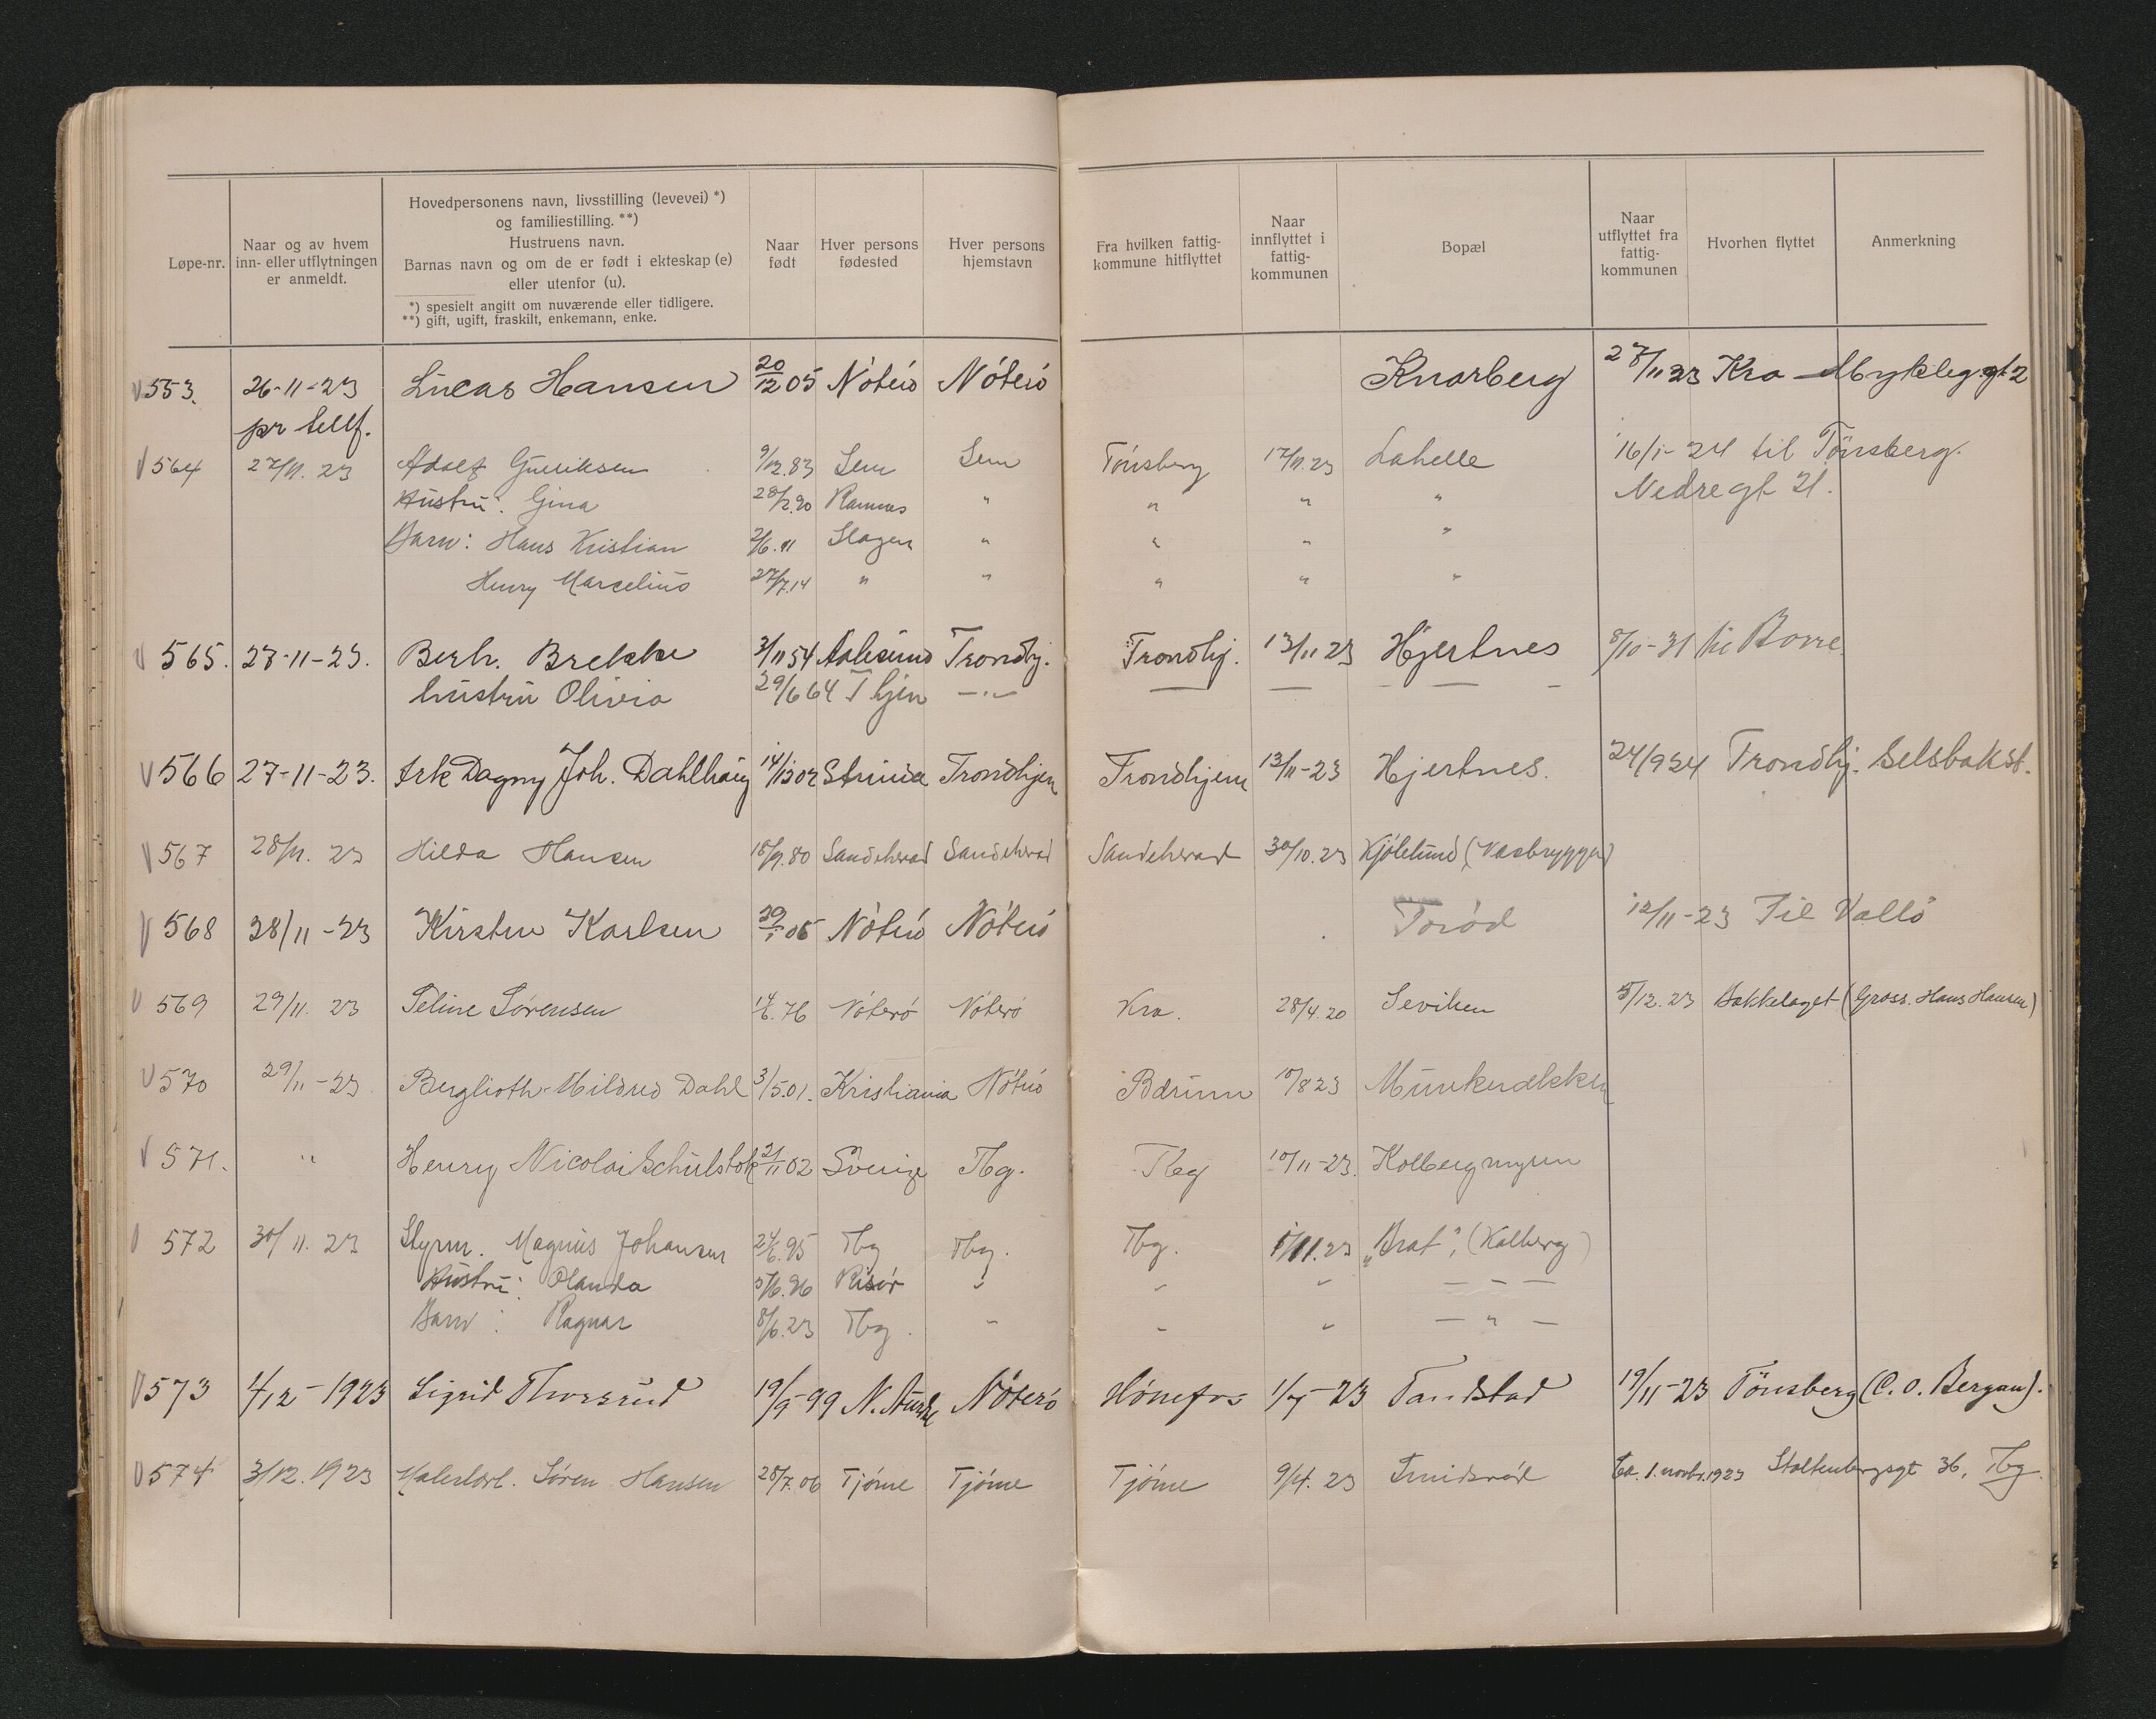 Løpe-nr.
Naar og av hvem
inn- eller utflytningen
er anmeldt.
Hovedpersonens navn, livsstilling (levevei) *)
og familiestilling. **)
Hustruens navn.
Barnas navn og om de er født i ekteskap (e)
eller utenfor (u).
*) spesielt angitt om nuværende eller tidligere.
**) gift, ugift, fraskilt, enkemann, enke.
Naar
født
Hver persons
fødested
Hver persons
hjemstavn
Fra hvilken fattig-
kommune hitflyttet
Naar
innflyttet i
fattig-
kommunen
Bopæl
Naar
utflyttet fra
fattig-
kommunen
Hvorhen flyttet
Anmerkning
553. 26-11-23 Lucas Hansen 20/12 05 Nøterø Nøterø Knarberg 27/11 23 Kra
pr tellf.
564 27/11. 23 Adolf 9/12.83 Sem Sem Tønsberg 17/11.23 Lahelle 16/1-24 til Tönsberg.
Hustru: Gina 28/2.90 Ramnes " " " " Nedregt 21.
Barn: Hans Kristian 2/6.11 Slagen " " " "
Henry Marcelius 27/7.14 " " " " "
565. 27-11-23. Berh. Brekke 3/11 54 Aalesund Trondhj. Trondhj. 13/11 23 Hjertnes 8/10-31 til Borre.
hustru Olivia 29/6 64 T hjem —"— — — — — —
566 27-11-23. Frk Dagny Joh. Dahlhaug 14/12 02 Strinda Trondhjem Trondhjem 13/11-23 Hjertnes. 24/9 24 Trondhj. Selsbakst.
567 28/11. 23 Hilda Hansen 18/9.80 Sandeherad Sandeherad Sandeherad 30/10.23 Kjölelund (Vasbryggen)
568 28/11-23 Kirsten Karlsen 29/1 05 Nøterø Nøterø Torød 12/11-23 Til Vallö
569 29/11. 23 Feline Sørensen 14/6.76 Nøterø Nøterø Kra. 28/4.20 Seviken 5/12.23 Bakkelaget (Gross. Hans Hansen)
570 29/11-23 Berglioth Mildred Dahl 3/5.01. Kristiania Nøterø Bærum 10/8 23 Munkerekken
571. " Henry Nicolai Schulstok 21/11 02 Sverige Tbg. Tbg 10/11-23. Kolbergmyren
572 30/11. 23 Styrm. Magnus Johansen 24/6.95 Tbg Tbg. Tbg. 1/11.23 „Brat", (Kolberg)
Hustru: Olanda 5/6.96 Risør " " " — — —
Barn: Ragnar 8/6.23 Tbg. " " " — " —
573 1/12-1923 Sigrid Thorsrud 19/9-99 Nøterø Hønefos 1/7-23 Tandstad 19/11-23 Tönsberg (C. O. Bergan).
574 3/12.1923 Malerlærl. Søren Hansen 28/7.06 Tjøme Tjøme Tjøme 9/4. 23 Smidsrød Ca. 1. novbr. 1923 Stoltenbergsgt 36, Tbg.